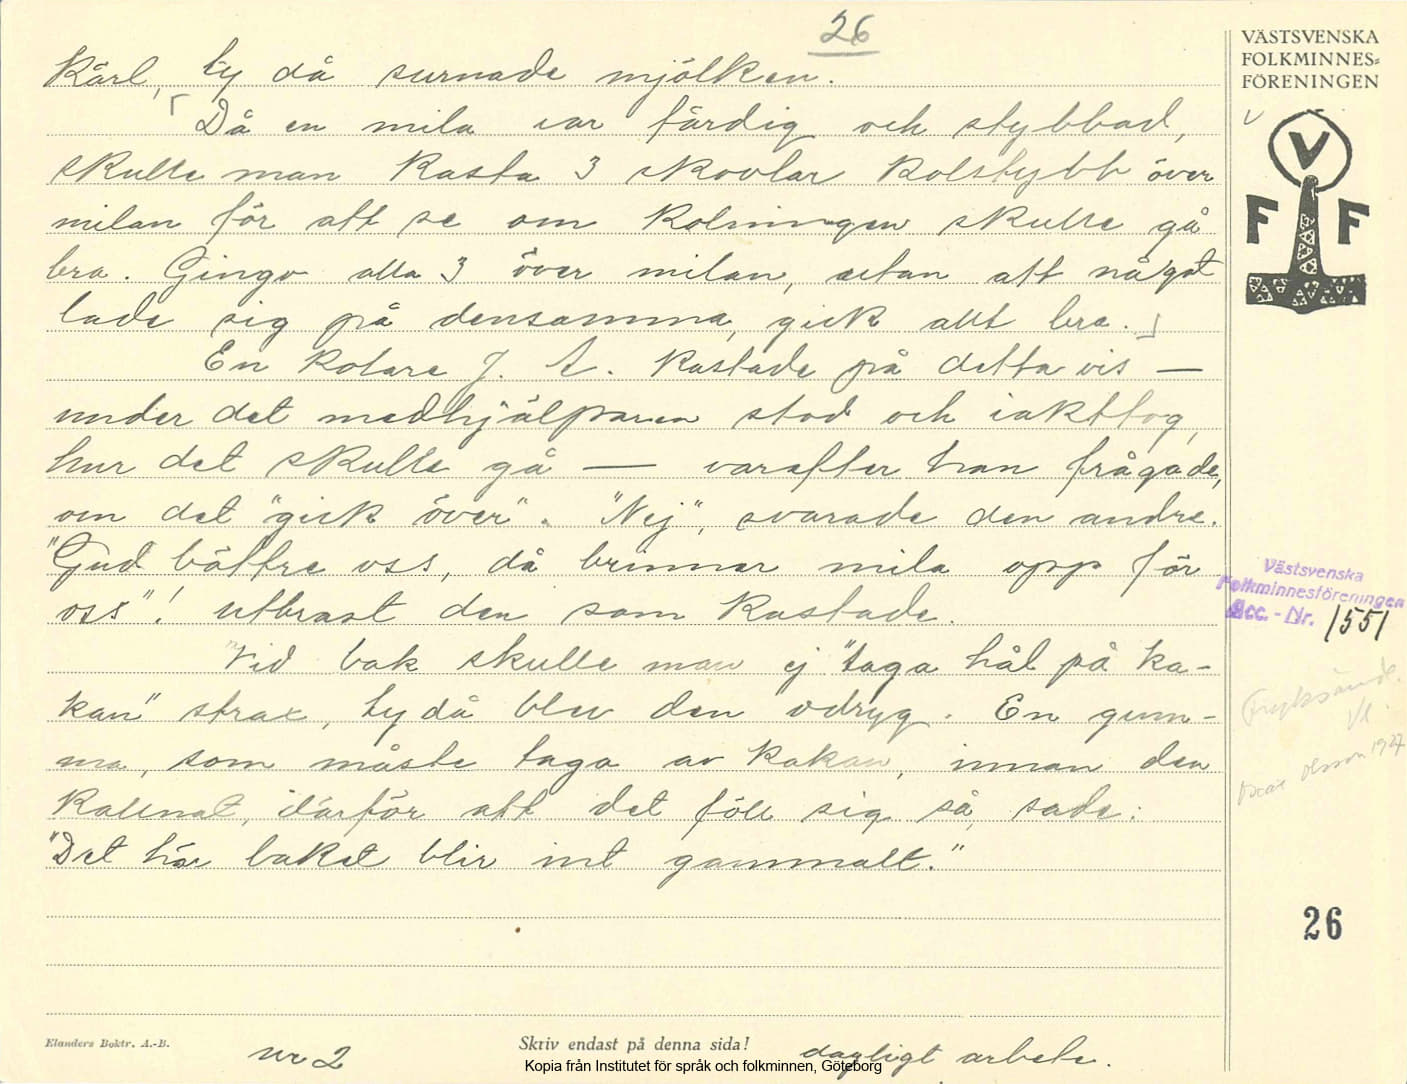 26
Kärl, ty då surnade mjölken.
Då en mila var färdig och stybbad,
skulle man kasta 3 skovlar kolstybb över
milan för att se om kolningen skulle gå
bra. Gingo alla 3 över milan, utan att något
lade sig på densamma, gick allt bra.
En kolare J. A. kastade på detta vis —
under det medhjälparen stod och iakttog,
hur det skulle gå — varefter han frågade,
om det "gick över". "Nej", svarade den andre.
"Gud bättre oss, då brinner mila opp för
oss"! utbrast den som kastade.
Vid bak skulle man ej "taga hål på ka-
kan" strax, ty då blev den odryg. En gum-
ma, som måste taga av kakan, innan den
kallnat, därför att det föll sig så, sade:
"Det här baket blir int gammalt."
VÄSTSVENSKA
FOLKMINNES=
FÖRENINGEN
V
V
F F
Västsvenska
Folkminnesföreningen
Acc. - Nr. 1551
Fryksände.
Vl.
Olsson 1927
26
Elanders Boktr. A.-B.
nr 2
Skriv endast på denna sida!
dagligt arbete.
Kopia från Institutet för språk och folkminnen, Göteborg